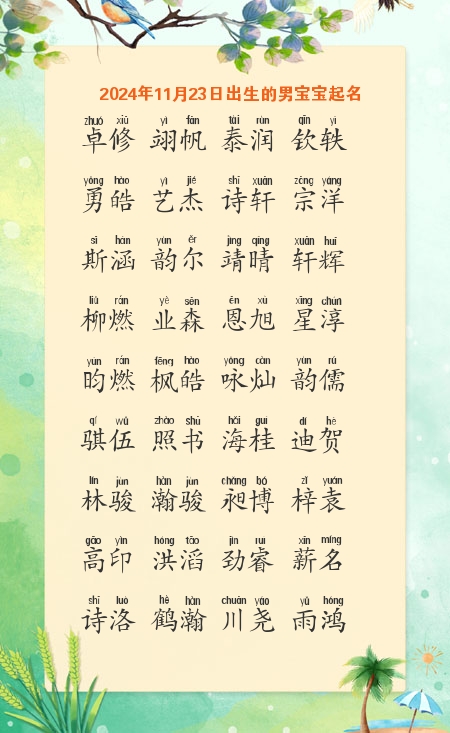 2024年11月23日出生的男宝宝起名
zhuó xiū yì fān tài rùn qīn yì
卓修 翊帆 泰润 钦轶
yǒng hào yì jié shī xuān zōng yáng
勇皓 艺杰 诗轩 宗洋
sī hán yùn ěr jìng qíng xuān huī
斯涵 韵尔 靖晴 轩辉
liǔ rán yè sēn ēn xù xīng chún
柳燃 业森 恩旭 星淳
yún rán fēng hào yǒng càn yùn rú
昀燃 枫皓 咏灿 韵儒
qí wǔ zhào shū hǎi guì dí hè
骐伍 照书 海桂 迪贺
lín jùn hàn jùn chǎng bó zǐ yuán
林骏 瀚骏 昶博 梓袁
gāo yìn hóng tāo jìn ruì xīn míng
高印 洪滔 劲睿 薪名
shī luò hè hàn chuān yáo yǔ hóng
诗洛 鹤瀚 川尧 雨鸿